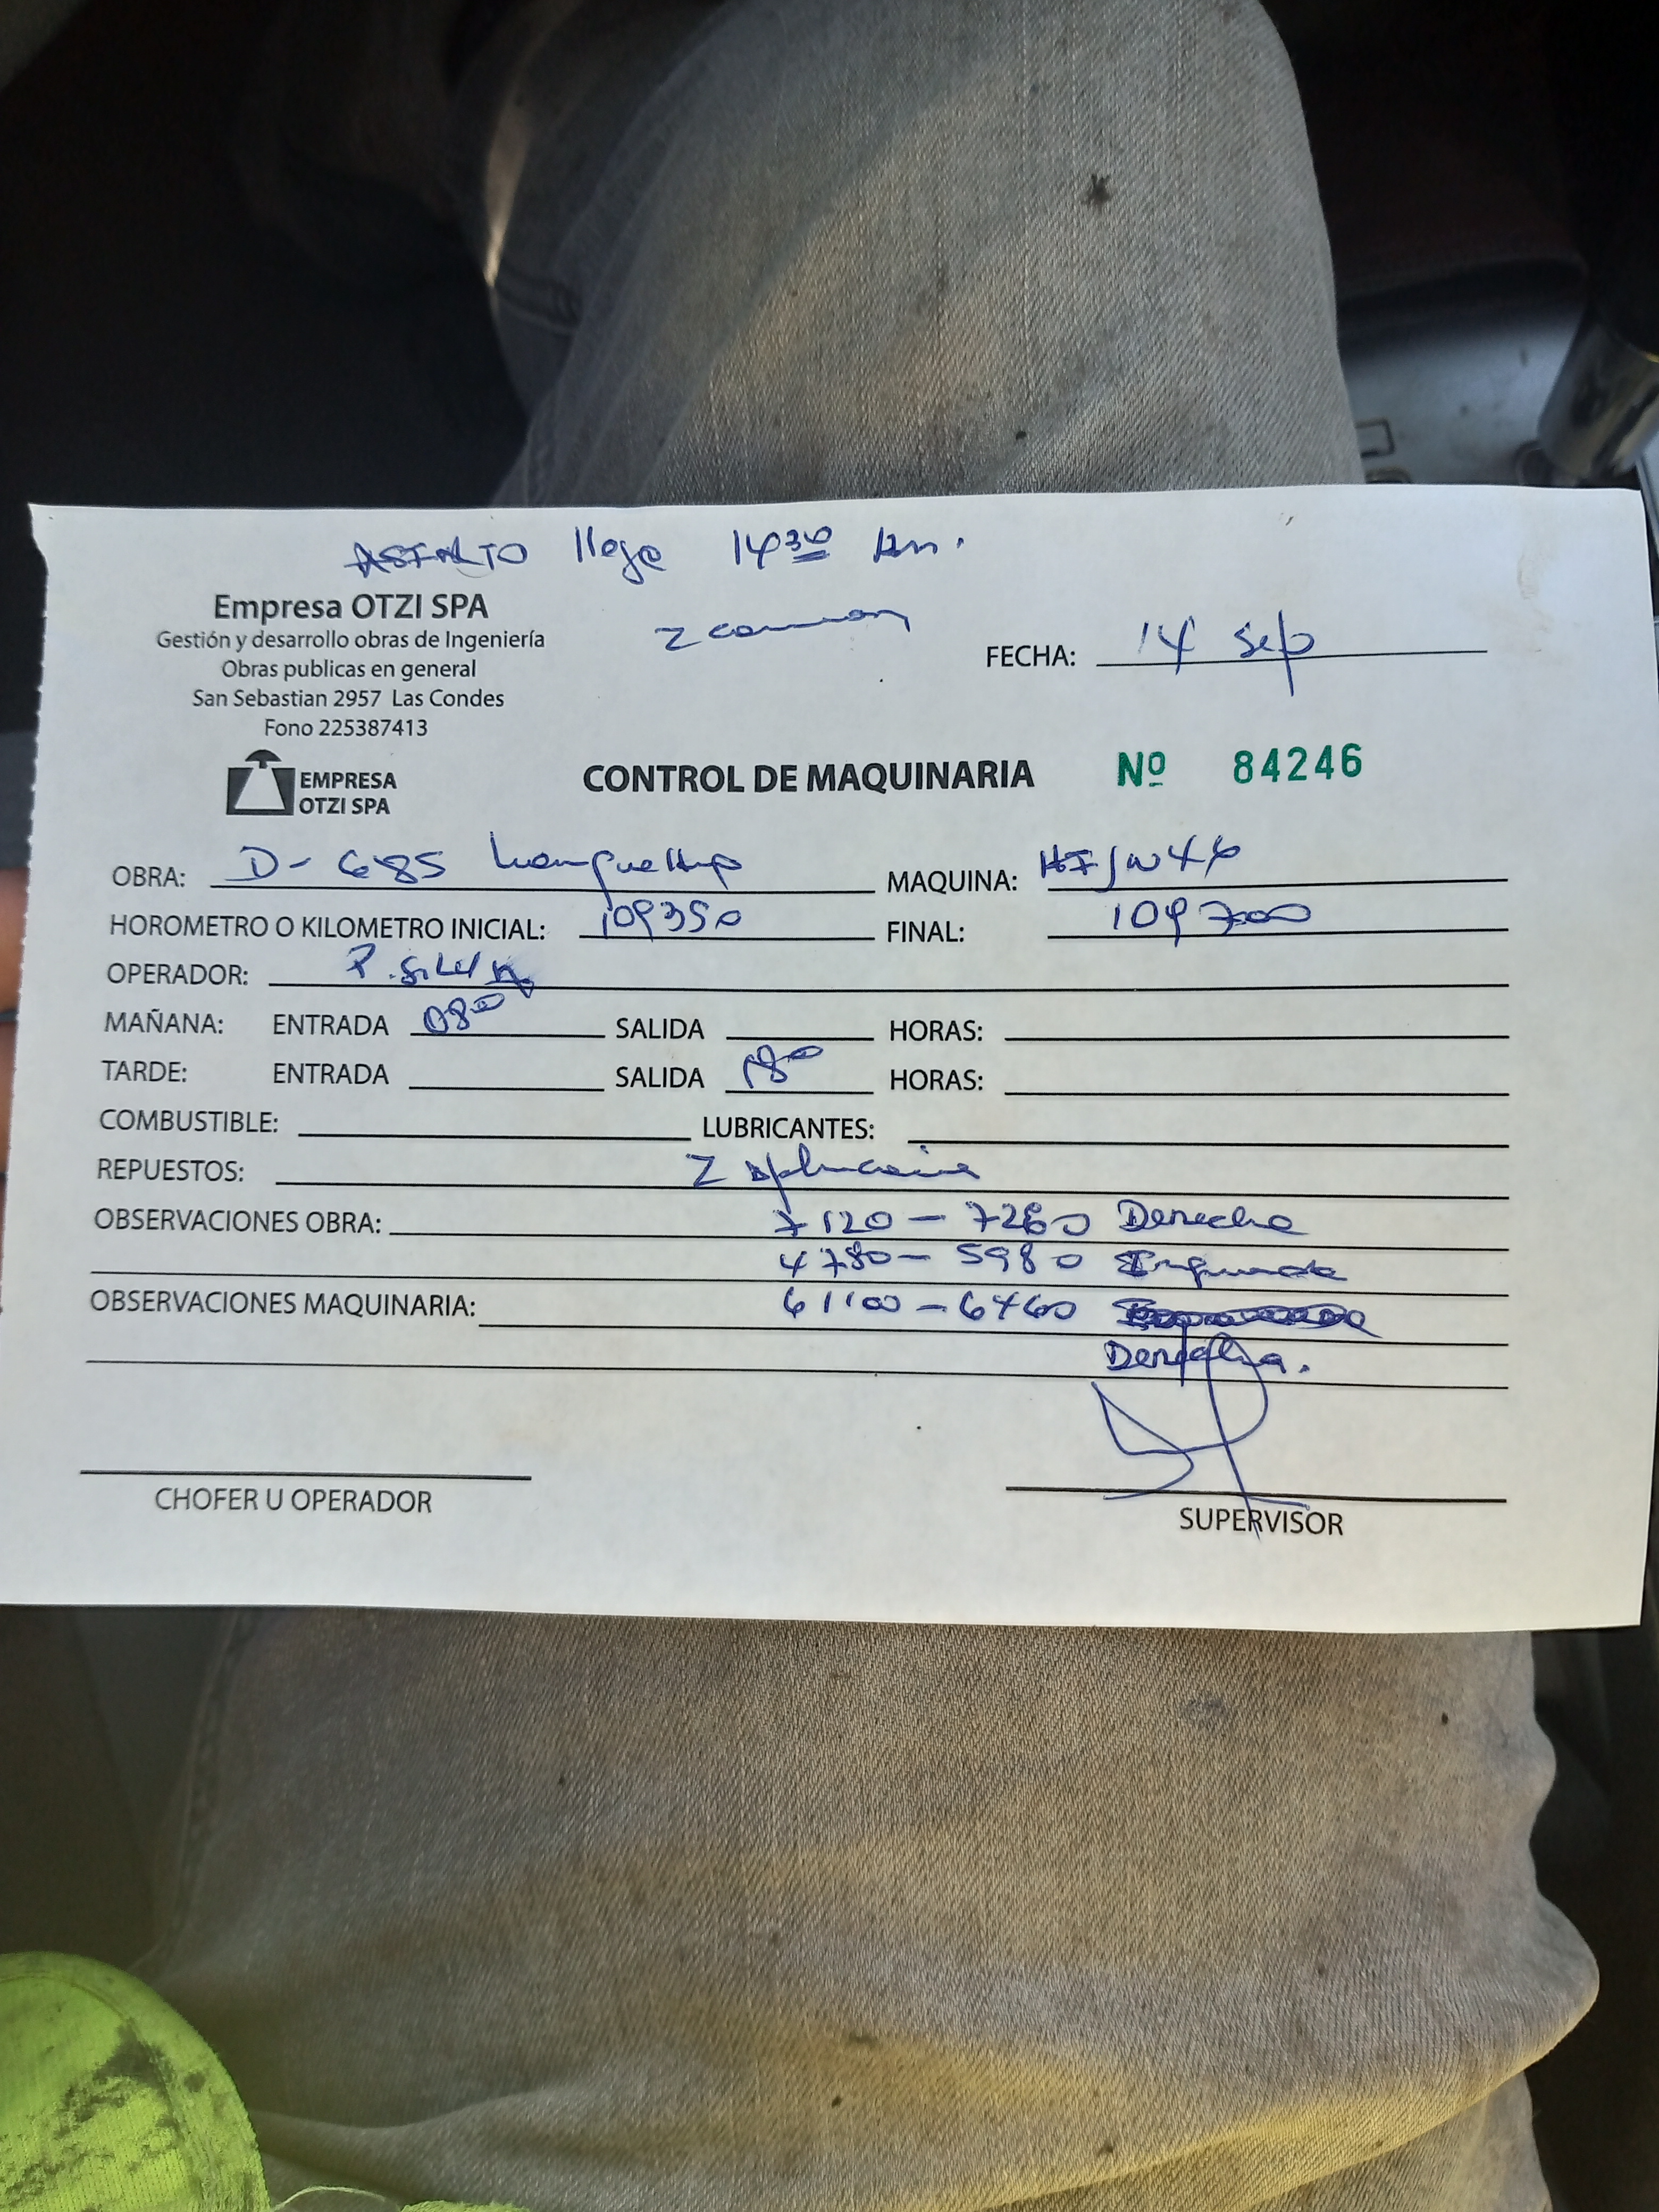 ASFALTO llega 14 30 Hrs.
Empresa OTZI SPA
Gestión y desarrollo obras de Ingeniería
Obras publicas en general
San Sebastian 2957 Las Condes
Fono 225387413
2
FECHA: 14 Sep
EMPRESA
OTZI SPA
CONTROL DE MAQUINARIA Nº 84246
OBRA: D-685 MAQUINA:
HOROMETRO O KILOMETRO INICIAL: 109350 FINAL: 109700
OPERADOR: P. Silva
MAÑANA: ENTRADA 08 00 SALIDA HORAS:
TARDE: ENTRADA SALIDA 18 00 HORAS:
COMBUSTIBLE: LUBRICANTES:
REPUESTOS: 2
OBSERVACIONES OBRA: 7120 - 7260 Derecha
4780 - 5980
OBSERVACIONES MAQUINARIA: 61100 - 6460
Derecha.
CHOFER U OPERADOR
SUPERVISOR